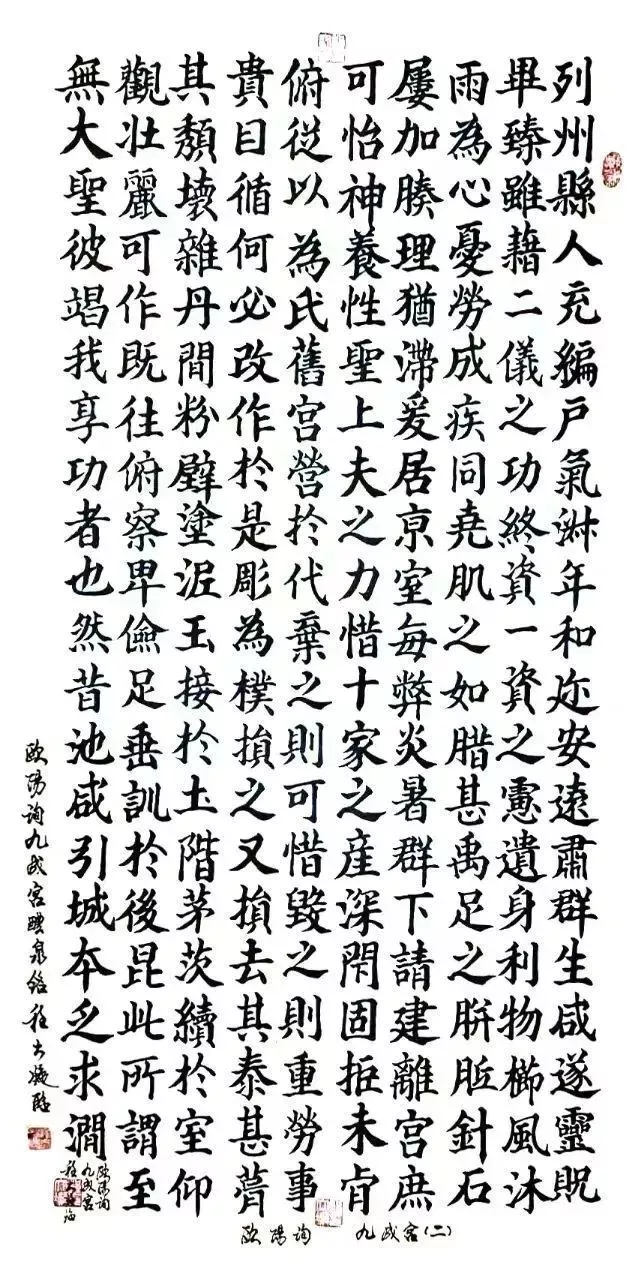 列州縣人充編戶氣淋年和迩安遠肅群生咸遂靈貺
畢臻雖藉二儀之功終資一資之憲遺身利物櫛風沐
雨為心憂勞成疾同堯肌之如腊甚禹足之胼胝針石
屢加腠理猶滯爰居京室每弊炎暑群下請建離宮庶
可怡神養性聖上夫之力惜十家之產深閇固拒未肯
俯從以為氏舊宮營於代棄之則可惜毀之則重勞事
貴曰循何必改作於是彫為樸損之又損去其泰甚葺
其頹壞雜丹間粉壁塗泥玉接於土階茅茨續於室仰
觀壯麗可作既往俯察卑儉足垂訓於後昆此所謂至
無大聖彼竭我享功者也然昔池咸引城本乏求澗
歐陽詢九成宮醴泉銘
歐陽詢
九成宮
歐陽詢 九成宮(二)